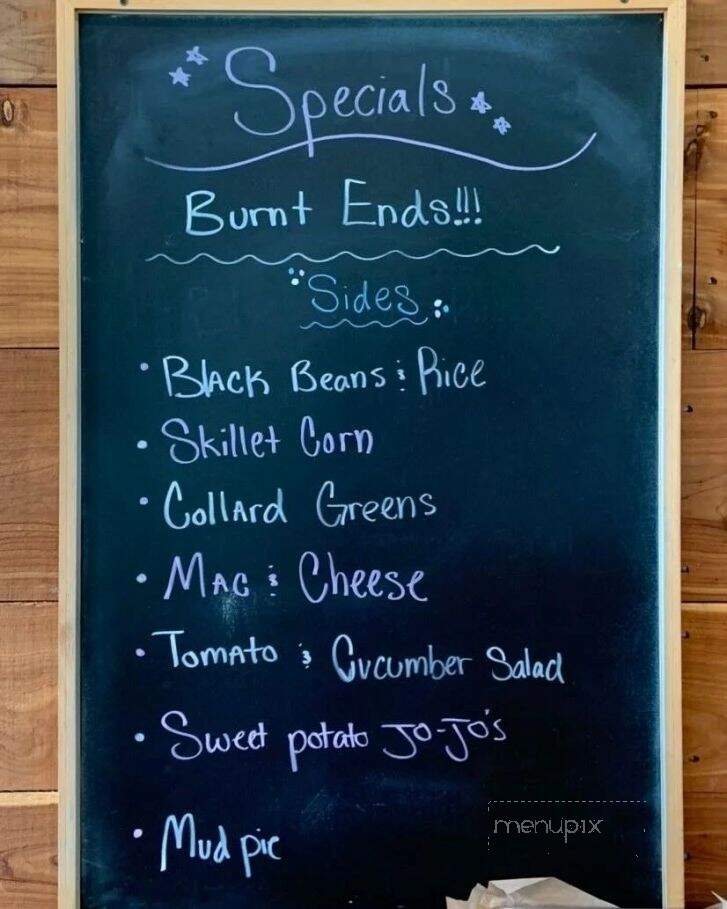 Specials
Burnt Ends!!!
Sides
• Black Beans & Rice
• Skillet Corn
• Collard Greens
• Mac & Cheese
• Tomato & Cucumber Salad
• Sweet potato Jo-Jo's
• Mud pie
menupix